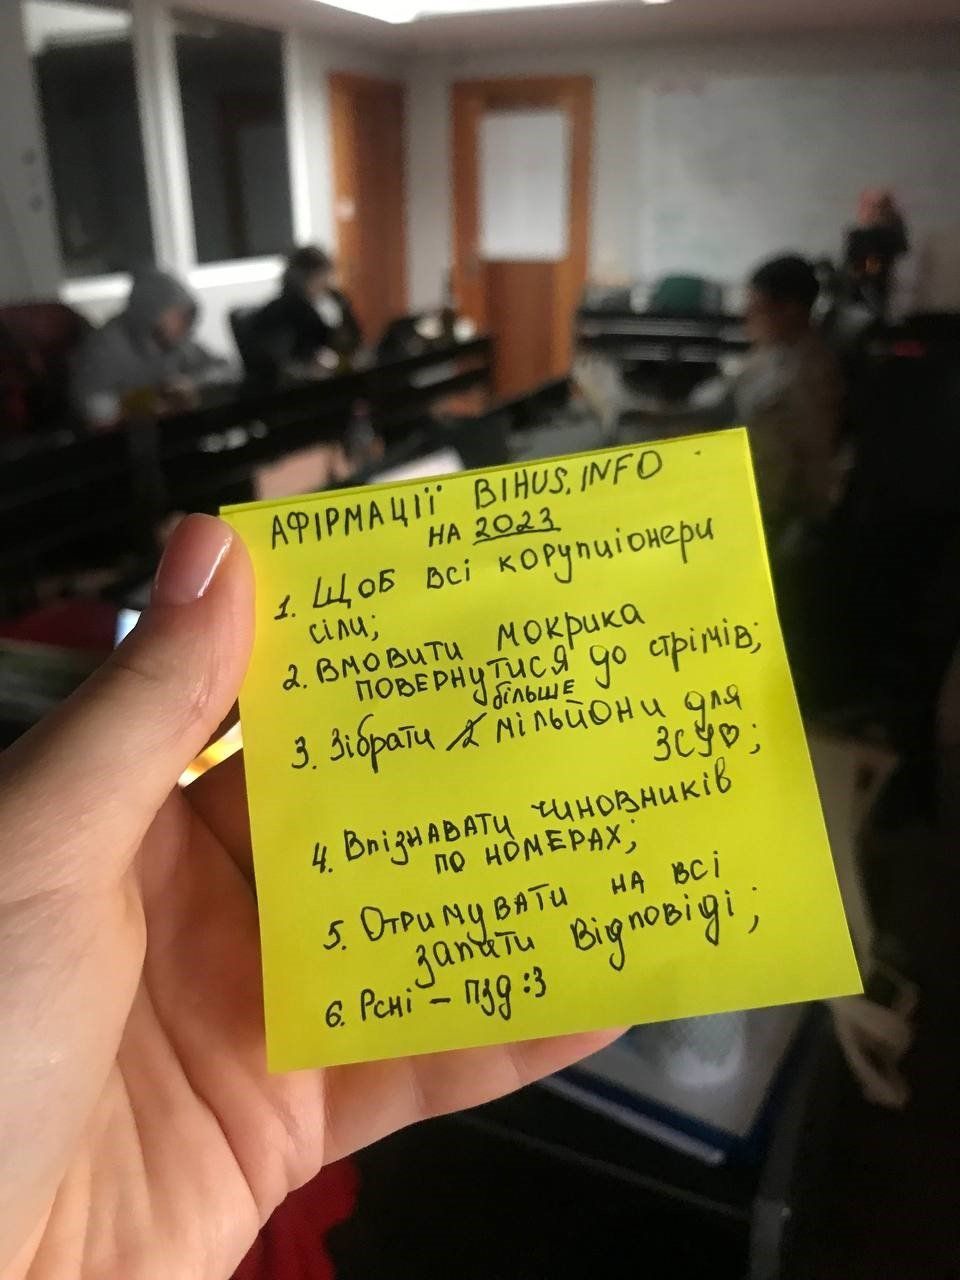 АФІРМАЦІЇ BIHUS.INFO
НА 2023
1. ЩОБ ВСІ корупціонери
сіли;
2. ВМОВИТИ МОКРИКА
ПОВЕРНУТИСЯ до стрімів;
більше
3. Зібрати 2 мільйони для
ЗСУ♡;
4. Впізнавати чиновників
по номерах;
5. Отримувати на всі
запити відповіді;
6. Рсні – пзд :3